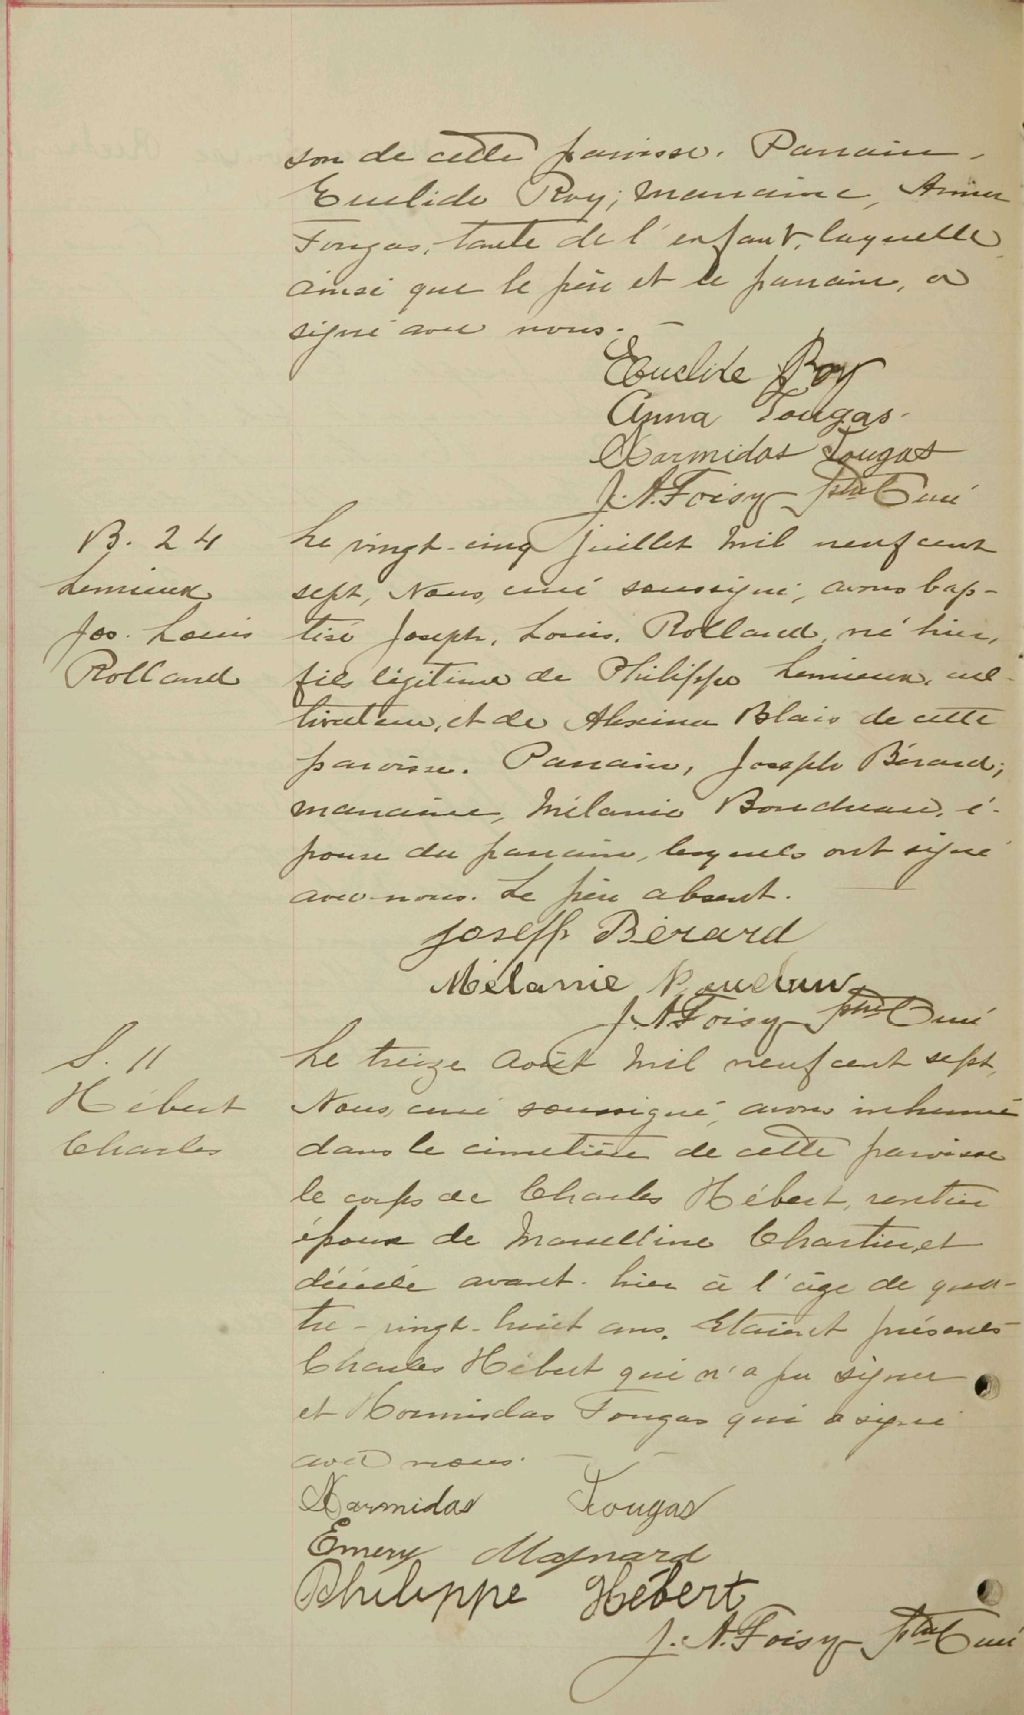 son de cette paroisse. Parrain,
Euclide Roy; marraine, Anna
Tougas, tante de l'enfant, laquelle
ainsi que le père et le parrain, a
signé avec nous.
Euclide Roy
Anna Tougas
Harmidas Tougas
J. A. Foisy Ptre Curé
B. 24
Lemieux
Jos. Louis
Rolland
Le vingt-cinq juillet mil neuf cent
sept, Nous, curé soussigné, avons bap-
tisé Joseph, Louis, Rolland, né hier,
fils légitime de Philippe Lemieux, cul-
tivateur, et de Alexina Blais de cette
paroisse. Parrain, Joseph Bérard;
marraine, Mélanie Boudreau, é-
pouse du parrain, lesquels ont signé
avec nous. Le père absent.
Joseph Bérard
Mélanie
J. A. Foisy Ptre Curé
S. 11
Hébert
Charles
Le treize Août mil neuf cent sept,
Nous, curé soussigné, avons inhumé
dans le cimetière de cette paroisse
le corps de Charles Hébert, rentier
époux de Marcelline Chartier, et
décédé avant-hier à l'âge de qua-
tre-vingt-huit ans. Etaient présents
Charles Hébert qui n'a pu signer
et Hormisdas Tougas qui a signé
avec nous.
Harmidas Tougas
Emery Maynard
Philippe Hébert
J. A. Foisy Ptre Curé